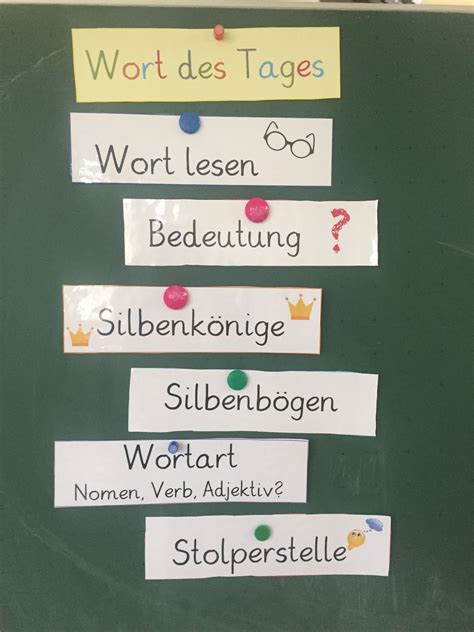 Wort des Tages
Wort lesen
Bedeutung ?
Silbenkönige
Silbenbögen
Wortart
Nomen, Verb, Adjektiv?
Stolperstelle